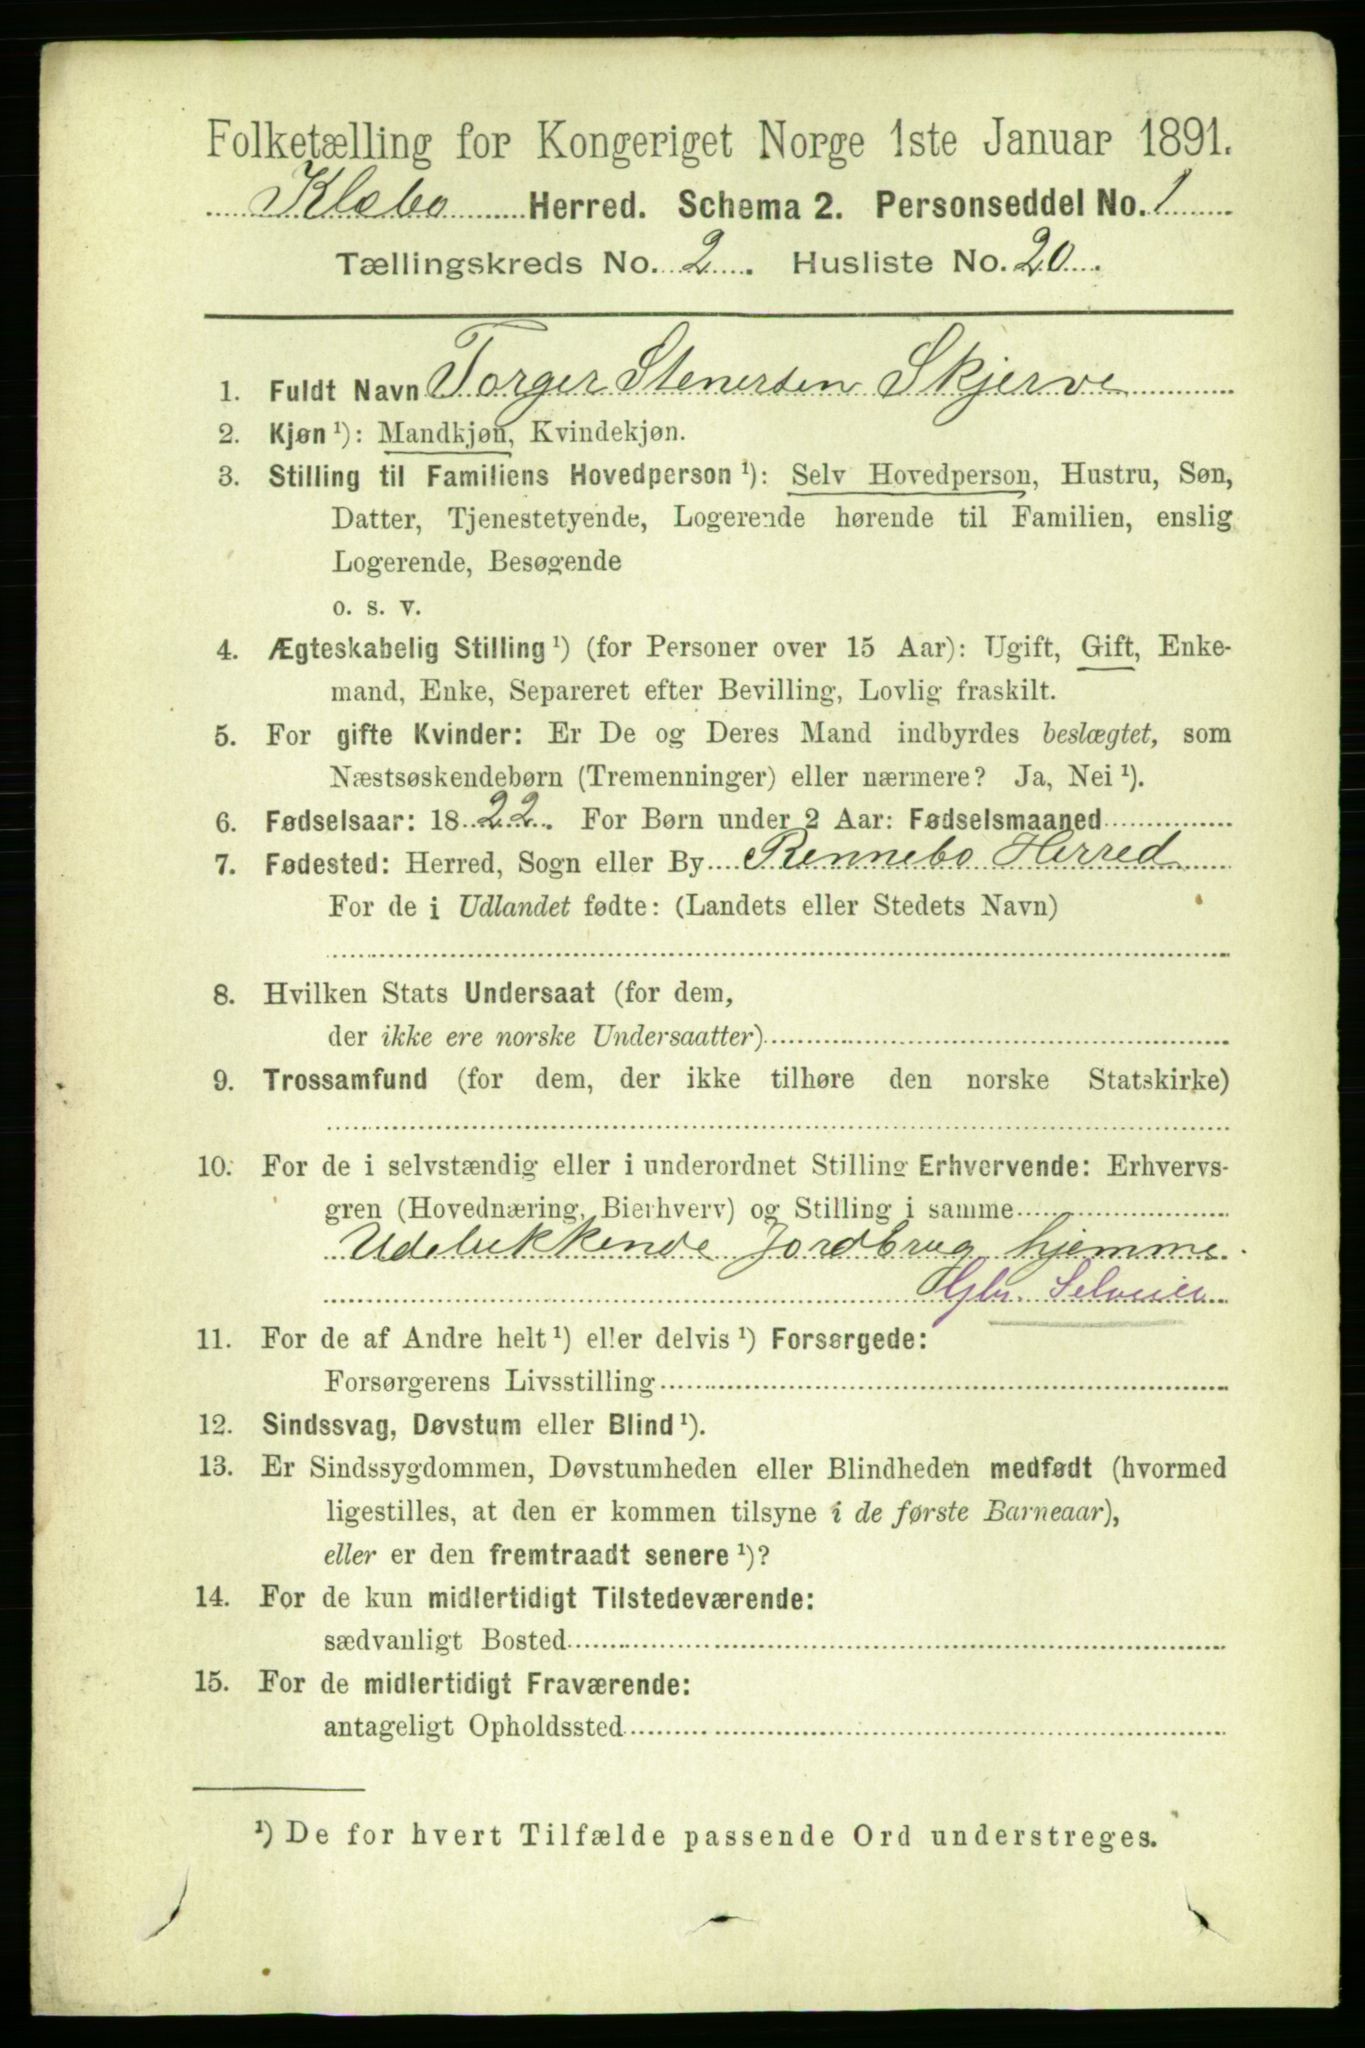 Folketælling for Kongeriget Norge 1ste Januar 1891.
Klæbo Herred. Schema 2. Personseddel No. 1
Tællingskreds No. 2. Husliste No. 20.
1. Fuldt Navn Torger Stenersen Skjerve
2. Kjøn¹): Mandkjøn, Kvindekjøn.
3. Stilling til Familiens Hovedperson¹): Selv Hovedperson, Hustru, Søn,
Datter, Tjenestetyende, Logerende hørende til Familien, enslig
Logerende, Besøgende
o. s. v.
4. Ægteskabelig Stilling¹) (for Personer over 15 Aar): Ugift, Gift, Enke-
mand, Enke, Separeret efter Bevilling, Lovlig fraskilt.
5. For gifte Kvinder: Er De og Deres Mand indbyrdes beslægtet, som
Næstsøskendebørn (Tremenninger) eller nærmere? Ja, Nei¹).
6. Fødselsaar: 1822. For Børn under 2 Aar: Fødselsmaaned
7. Fødested: Herred, Sogn eller By Rennebo Herred
For de i Udlandet fødte: (Landets eller Stedets Navn)
8. Hvilken Stats Undersaat (for dem,
der ikke ere norske Undersaatter)
9. Trossamfund (for dem, der ikke tilhøre den norske Statskirke)
10. For de i selvstændig eller i underordnet Stilling Erhvervende: Erhvervs-
gren (Hovednæring, Bierhverv) og Stilling i samme
Udelukkende Jordbrug hjemme.
Gbr. Selveier
11. For de af Andre helt¹) eller delvis¹) Forsørgede:
Forsørgerens Livsstilling
12. Sindssvag, Døvstum eller Blind¹).
13. Er Sindssygdommen, Døvstumheden eller Blindheden medfødt (hvormed
ligestilles, at den er kommen tilsyne i de første Barneaar),
eller er den fremtraadt senere¹)?
14. For de kun midlertidigt Tilstedeværende:
sædvanligt Bosted
15. For de midlertidigt Fraværende:
antageligt Opholdssted
¹) De for hvert Tilfælde passende Ord understreges.